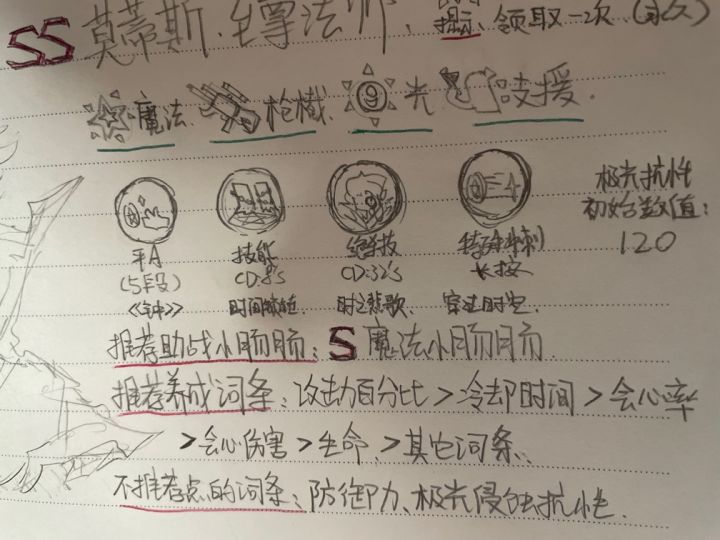 SS 莫蒂斯·至尊法师. 提示: 领取一次 (永久)
魔法. 枪械. 9 光 支援.
9
平A 技能 绝杀技 特殊冲刺 极光抗性
(5段) CD:8s CD:32s 长按 初始数值:
《钟》 时之悲歌. 穿过时空. 120
推荐助战小肠肠: S 魔法小肠肠.
推荐养成词条: 攻击力百分比 > 冷却时间 > 会心率
> 会心伤害 > 生命. > 其它词条.
不推荐点的词条: 防御力、极光侵蚀抗性.